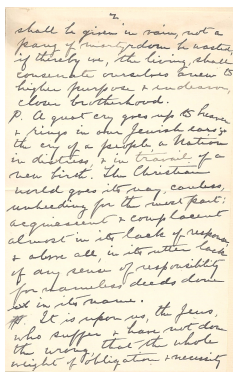 2.
shall be given in vain, not a
pang of martyrdom be wasted,
if thereby we, the living, shall
consecrate ourselves anew to
higher purpose & endeavor,
closer brotherhood.
P. A great cry goes up to heaven
& rings in our Jewish ears;
the cry of a people a Nation
in distress, & in travail of a
new birth. The Christian
world goes its way, careless,
unheeding for the most part;
acquiescent & complacent
almost in its lack of response,
& above all, in its utter lack
of any sense of responsibility
for nameless deeds done
in its name.
It is upon us, the Jews,
who suffer & have not done
the wrong that the whole
weight of obligation & necessity